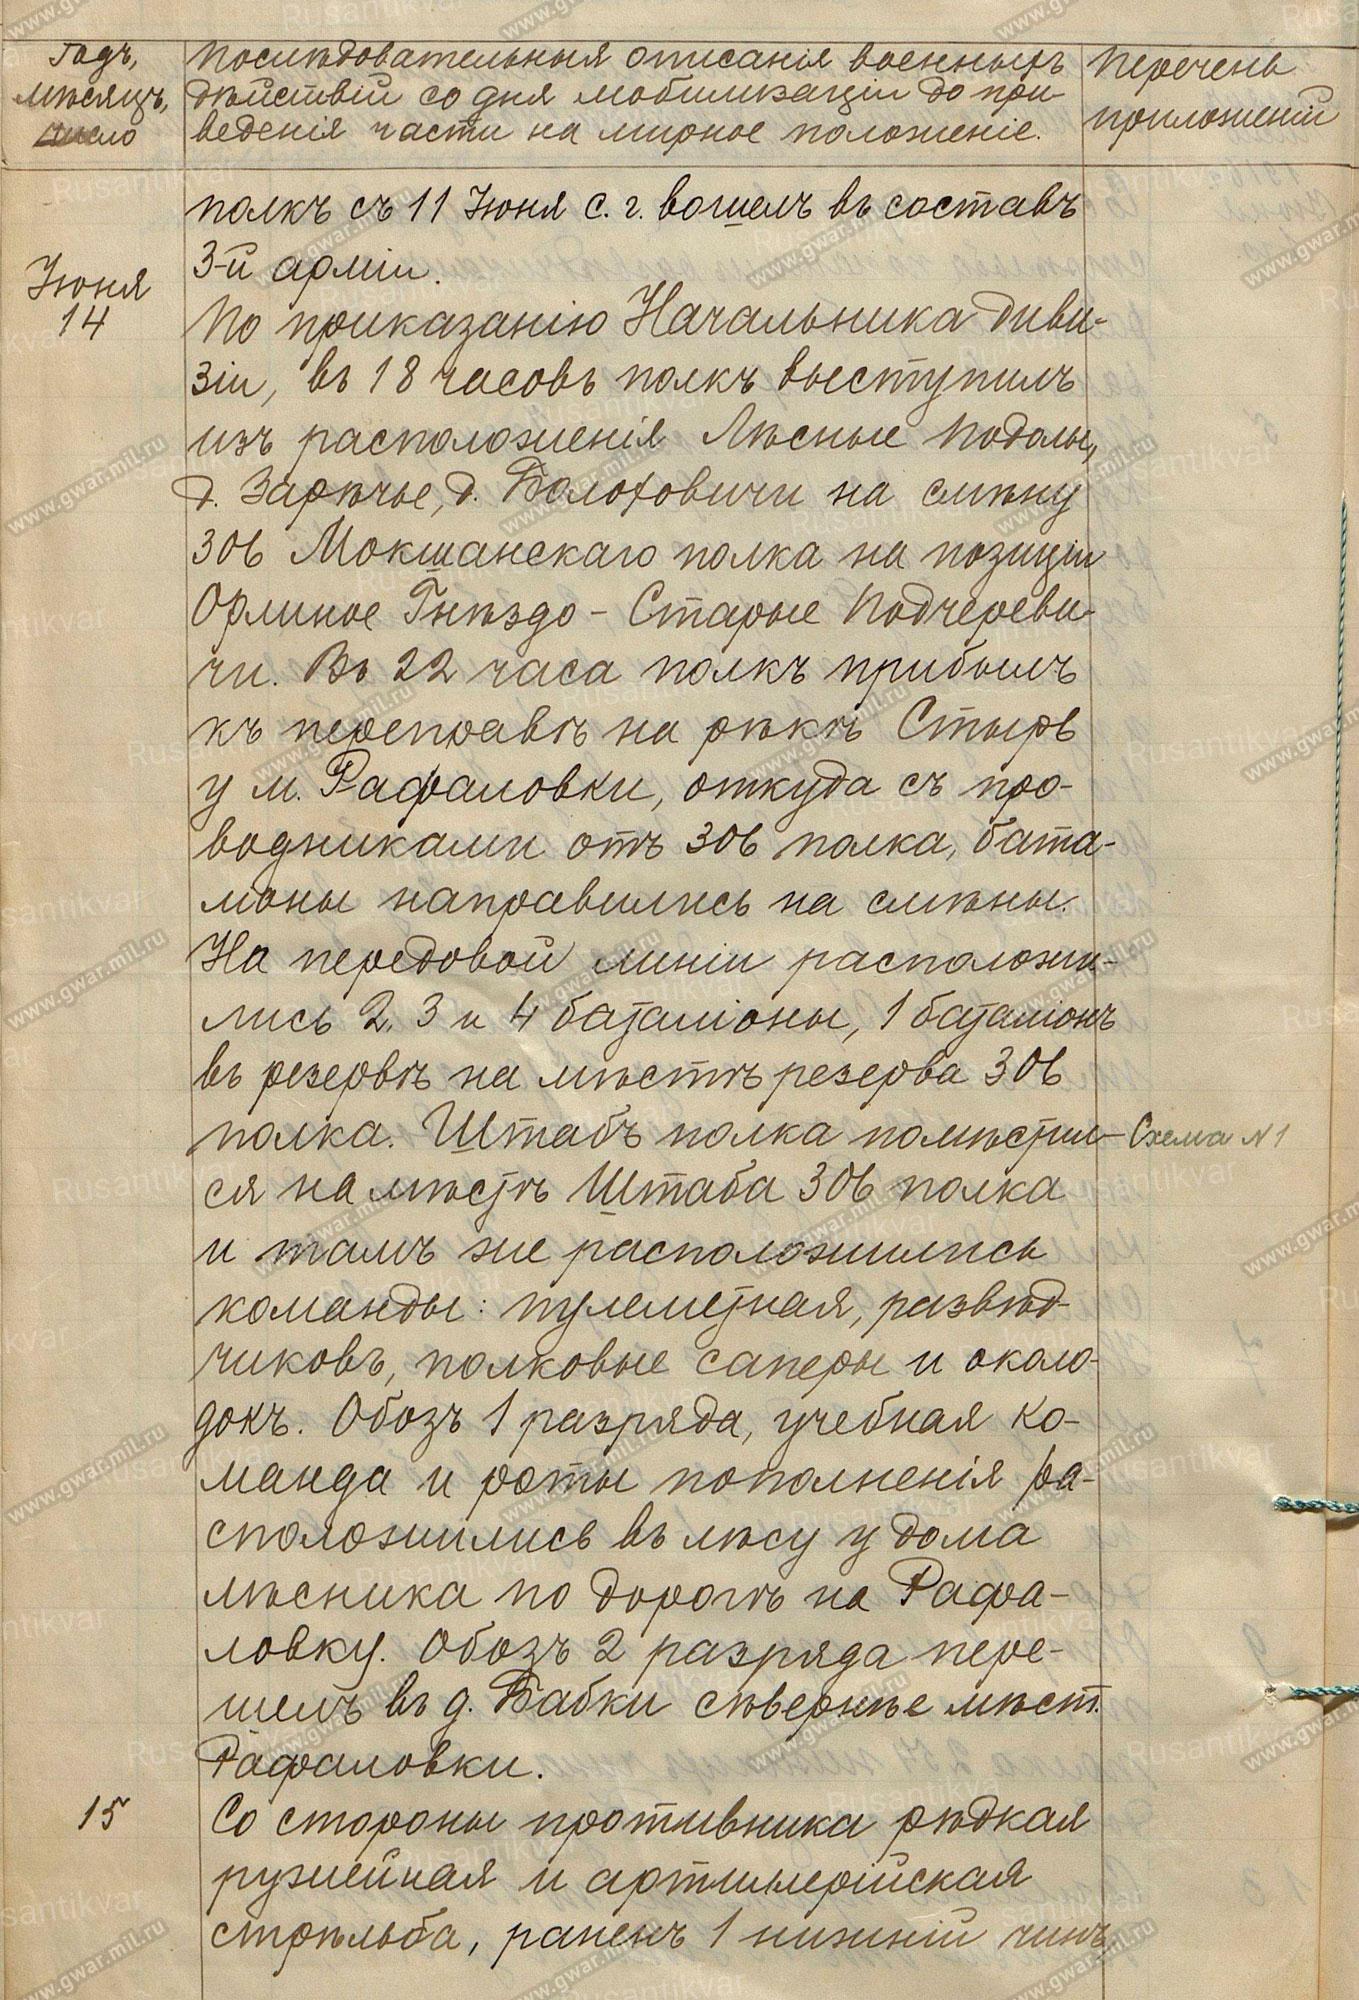 Годъ,
мѣсяцъ,
число
Послѣдовательныя описанія военныхъ
дѣйствій со дня мобилизаціи до при-
веденія части на мирное положеніе.
Перечень
приложеній
полкъ съ 11 Іюня с. г. вошелъ въ составъ
3-й арміи.
Іюня
14
По приказанію Начальника диви-
зіи, въ 18 часовъ полкъ выступилъ
изъ расположенія Лѣсные Подолы,
д. Зарѣчье, д. Болоховичи на смѣну
306 Мокшанскаго полка на позиціи
Орлиное Гнѣздо - Старые Подчереви-
чи. Въ 22 часа полкъ прибылъ
къ переправѣ на рѣкѣ Стырь
у м. Рафаловки, откуда съ про-
водниками отъ 306 полка, бата-
лоны направились на смѣны.
На передовой линіи расположи-
лись 2, 3 и 4 баталіоны, 1 баталіонъ
въ резервѣ на мѣстѣ резерва 306
полка. Штабъ полка помѣстил-
Схема N 1
ся на мѣстѣ Штаба 306 полка
и тамъ же расположились
команды: пулеметная, развѣд-
чиковъ, полковые саперы и около-
докъ. Обозъ 1 разряда, учебная ко-
манда и роты пополненія ра-
сположились въ лѣсу у дома
лѣсника по дорогѣ на Рафа-
ловку. Обозъ 2 разряда пере-
шелъ въ д. Бабки сѣвернѣе мѣст.
Рафаловки.
15
Со стороны противника рѣдкая
ружейная и артиллерійская
стрѣльба, раненъ 1 нижній чинъ